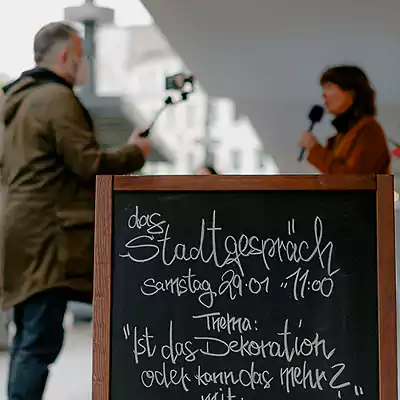 das
Stadtgespräch
Samstag, 29.01 11:00
Thema:
"Ist das Dekoration
oder kann das mehr?"
mit: